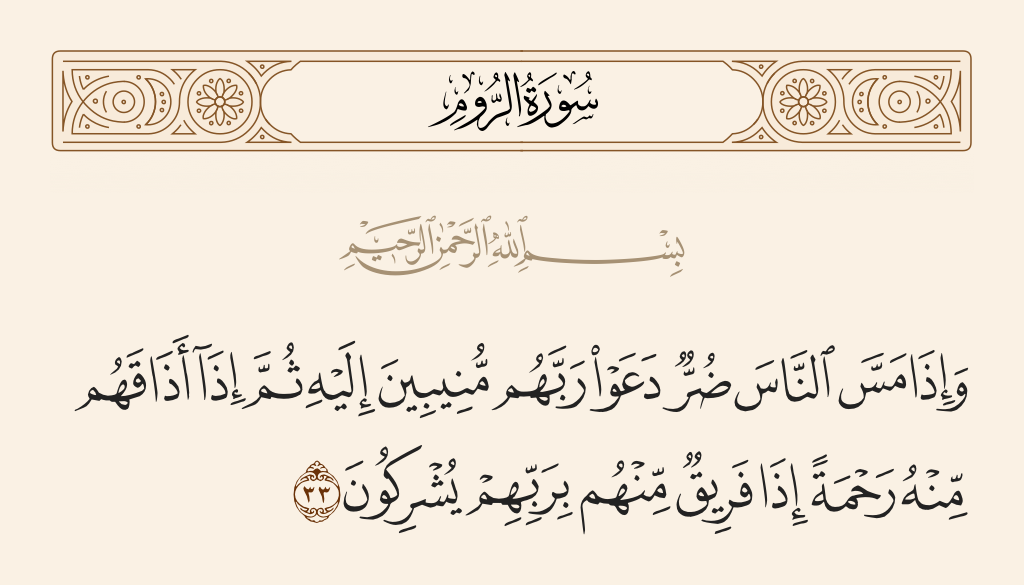 سُورَةُ الرُّومِ
بِسْمِ ٱللَّهِ ٱلرَّحْمَٰنِ ٱلرَّحِيمِ
وَإِذَا مَسَّ ٱلنَّاسَ ضُرٌّ دَعَوْا۟ رَبَّهُم مُّنِيبِينَ إِلَيْهِ ثُمَّ إِذَآ أَذَاقَهُم
مِّنْهُ رَحْمَةً إِذَا فَرِيقٌ مِّنْهُم بِرَبِّهِمْ يُشْرِكُونَ ٣٣